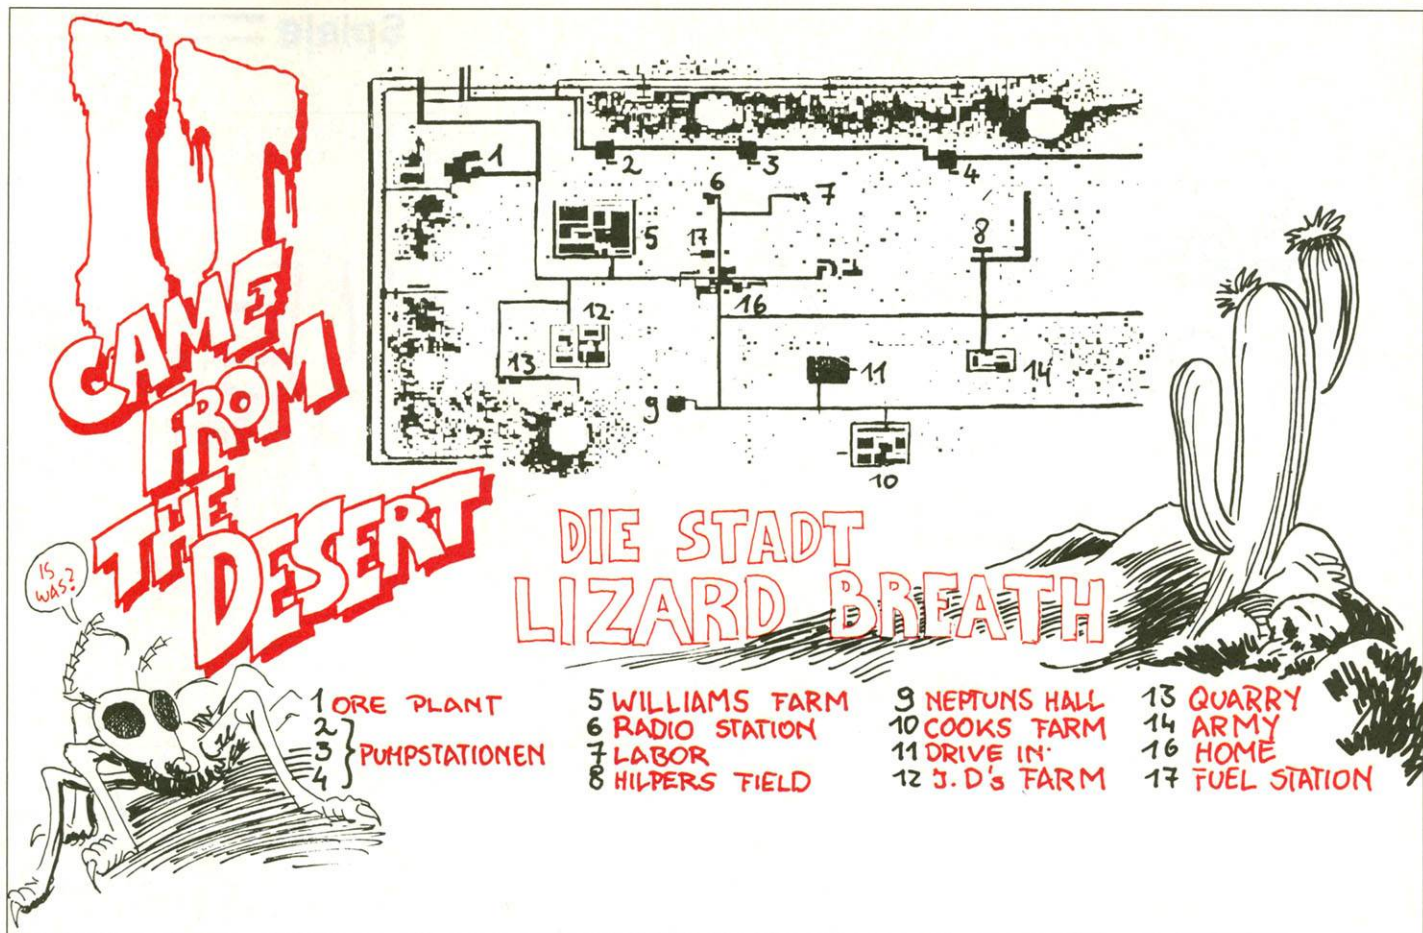 Spiele
IT
CAME
FROM
THE
DESERT
1
2
3
4
6
7
5
17
8
16
12
13
11
14
9
10
DIE STADT
LIZARD BREATH
IS
WAS?
1 ORE PLANT
2
3 PUMPSTATIONEN
4
5 WILLIAMS FARM
6 RADIO STATION
7 LABOR
8 HILPERS FIELD
9 NEPTUNS HALL
10 COOKS FARM
11 DRIVE IN
12 J.D's FARM
13 QUARRY
14 ARMY
16 HOME
17 FUEL STATION